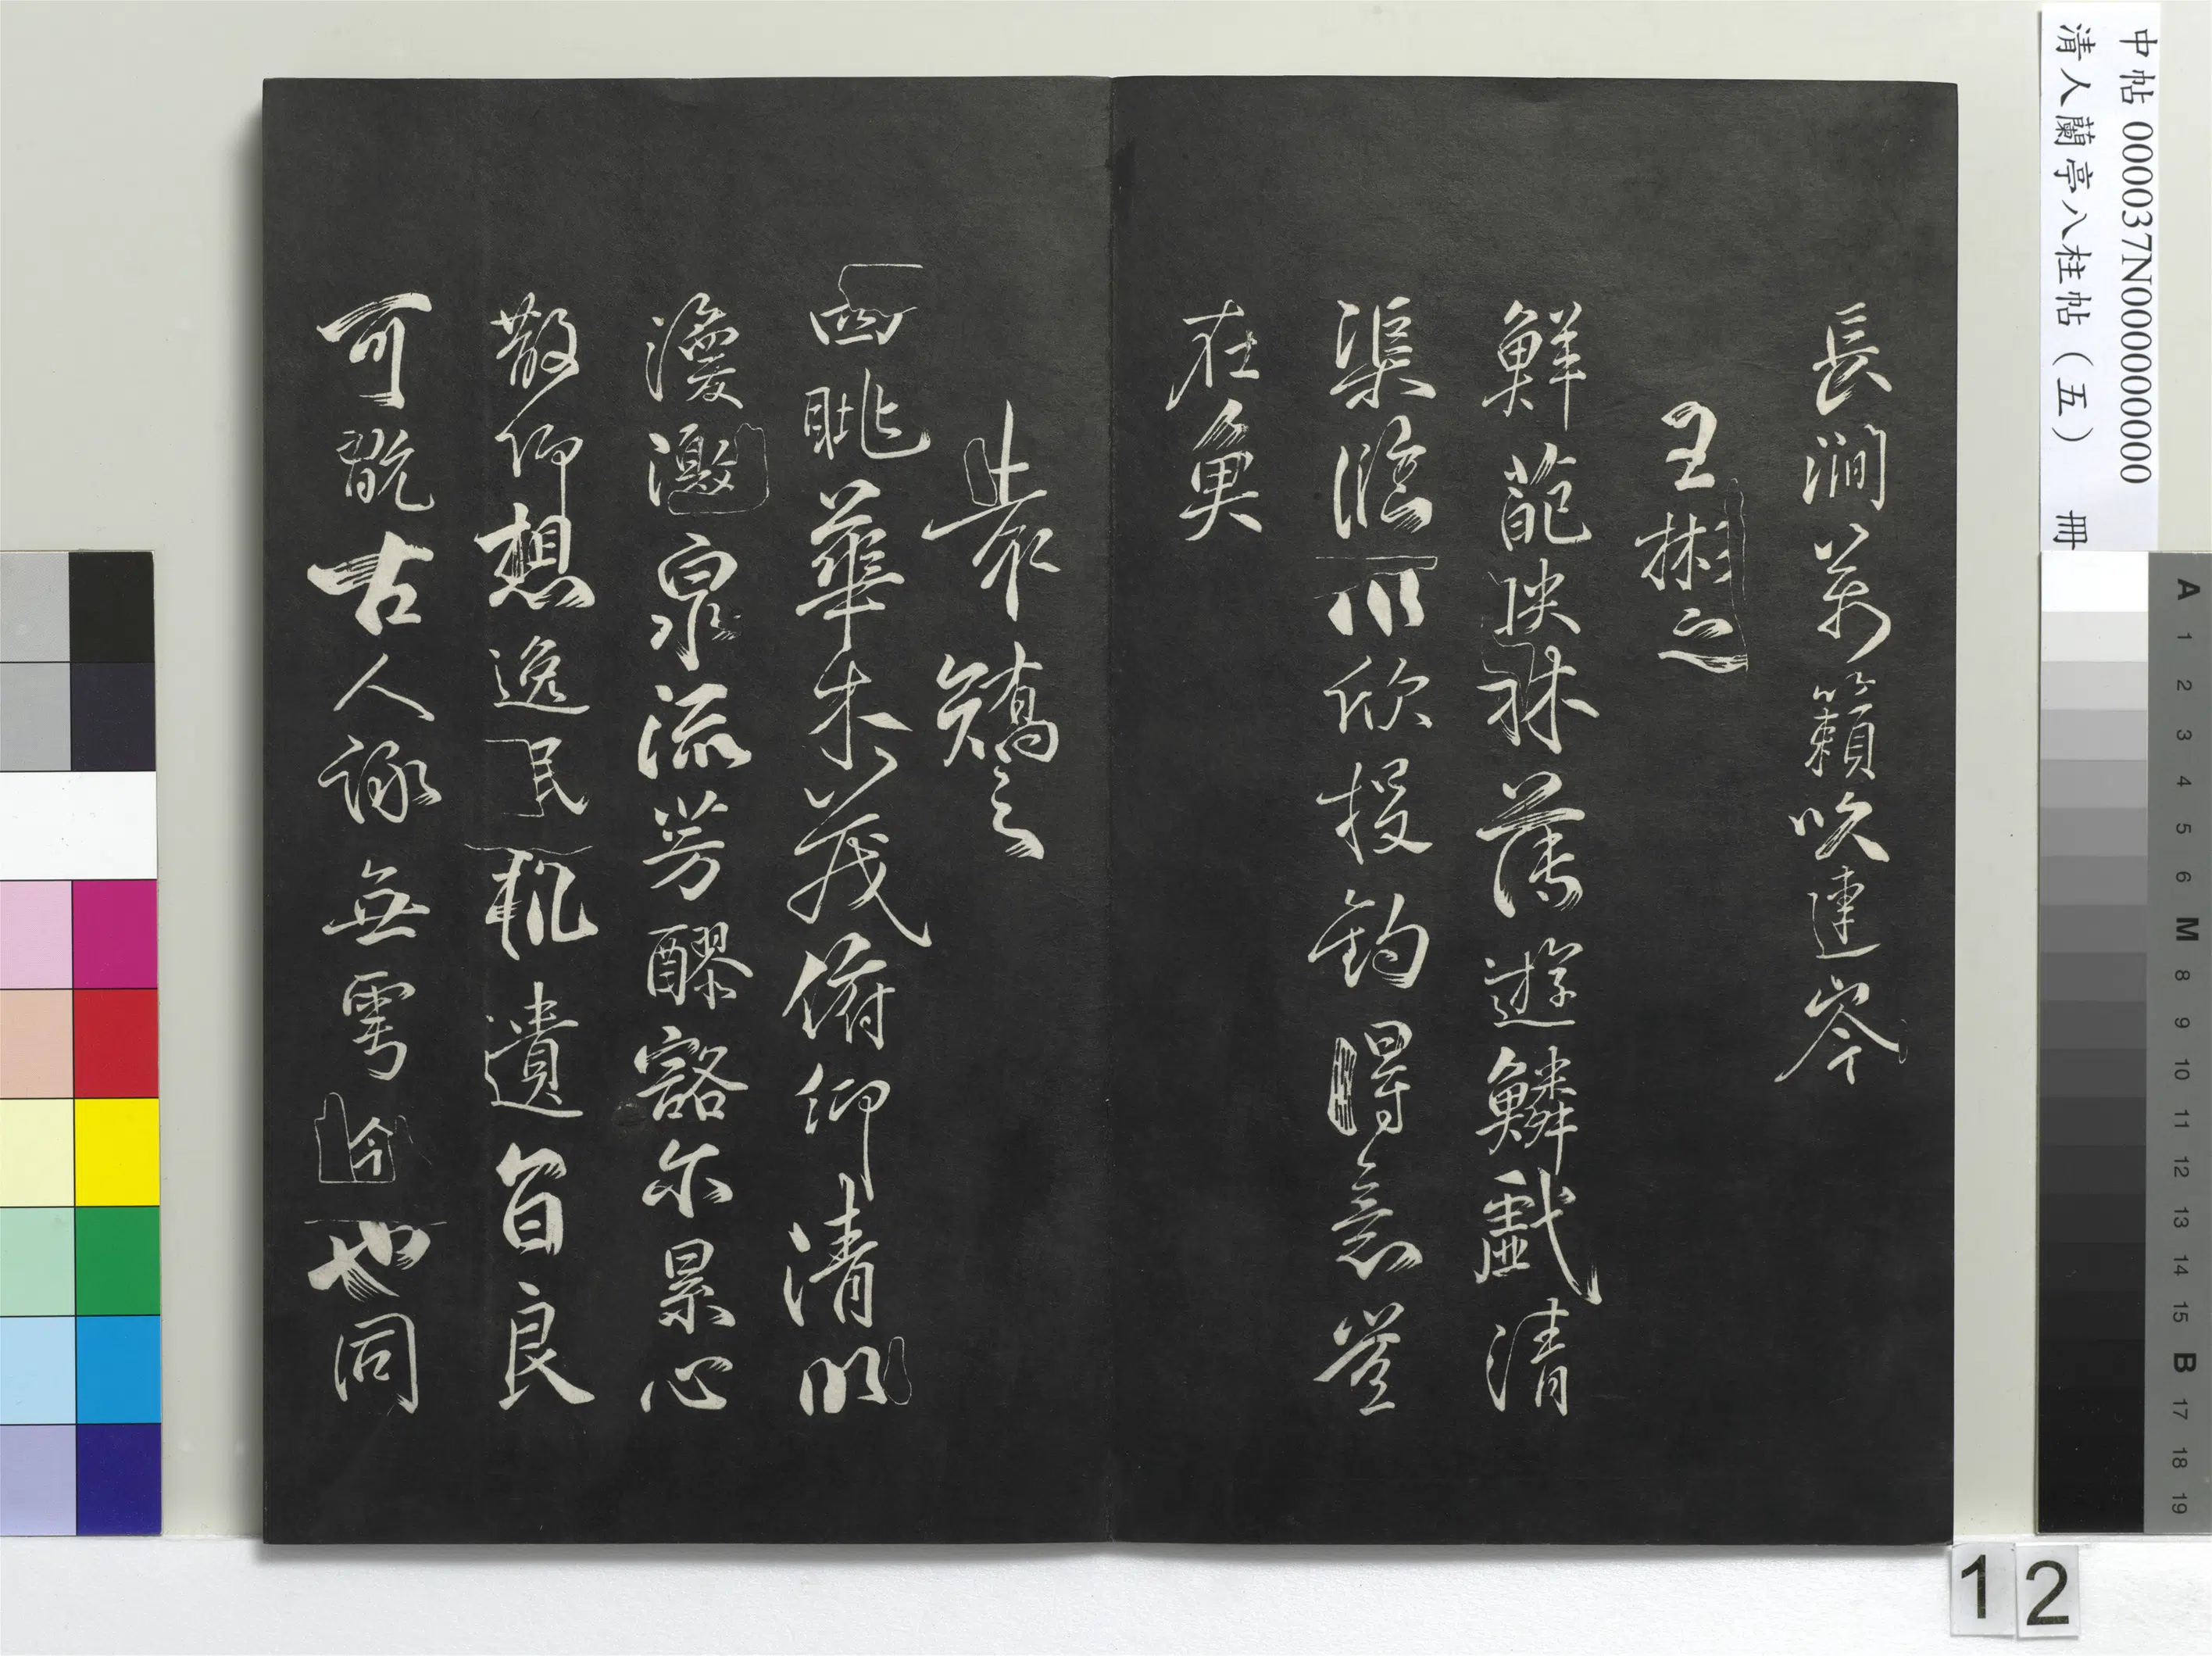 中帖 000037N000000000
清人蘭亭八柱帖（五） 冊
長澗萬籟吹連岑
王彬之
鮮葩映林薄遊鱗戲清
渠臨川欣投釣得意豈
在魚
袁嶠之
四眺華林茂俯仰清川
渙激泉流芳醪豁尓累心
散仰想逸民軌遺旨良
可翫古人詠無雩今也同
A 1 2 3 4 5 6 M 8 9 10 11 12 13 14 15 B 17 18 19
12